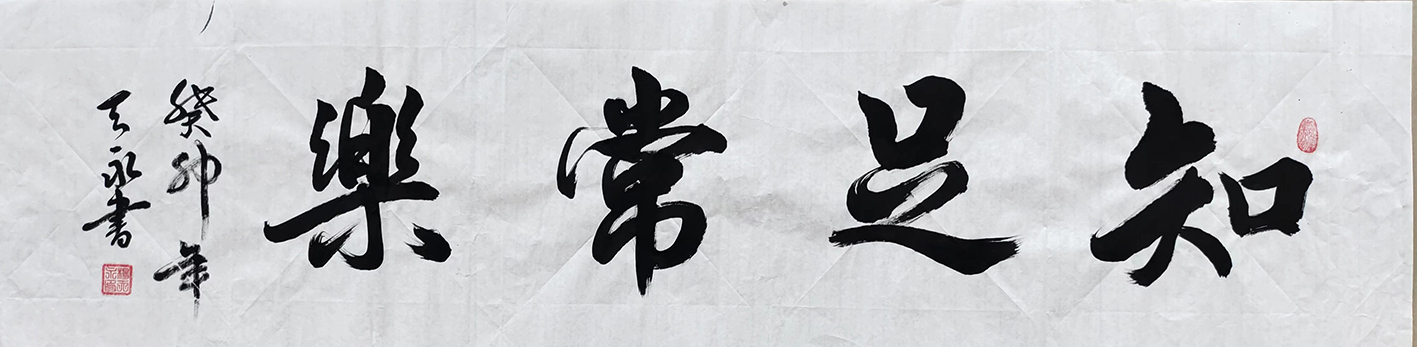 知足常樂
癸卯年
天永書